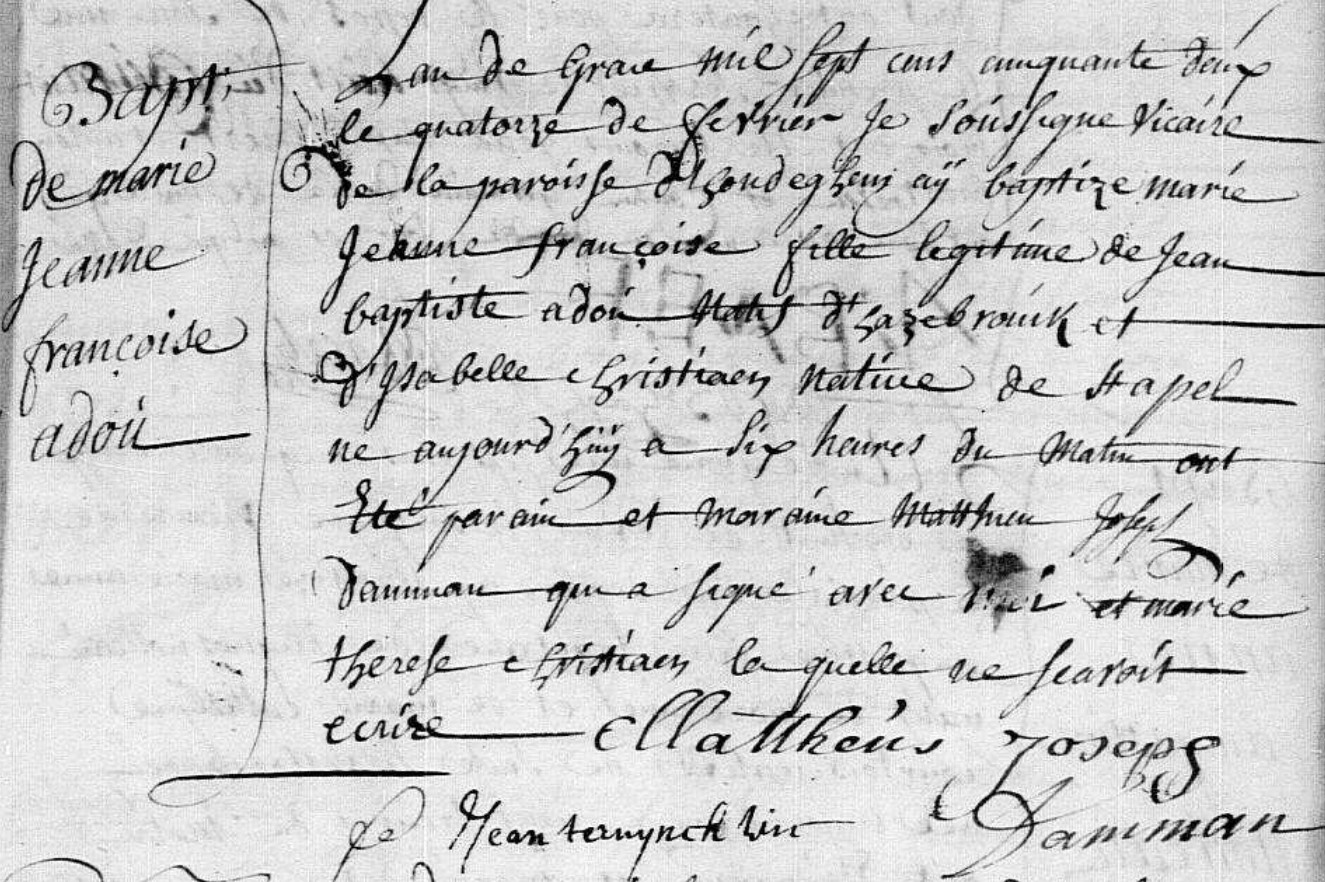 Bapt:
de marie
Jeanne
françoise
adoú
Lan de Grace mil sept cens cinquante deúx
le quatorze de fevrier Je soússigne Vicaire
de la paroisse d'hondeghem aÿ baptize marie
Jeanne françoise fille legitime de Jean
baptiste adoú natif d'hazebroúck et
d'Isabelle christiaen native de stapel
ne aujourd'húÿ a six heures du matin ont
Eté parain et maraine Matthieu Joseph
Damman qui a signé avec moi et marie
therese christiaen la quelle ne scavoit
ecrire Mattheús Joseph
Damman
fe Jean ternynck vic